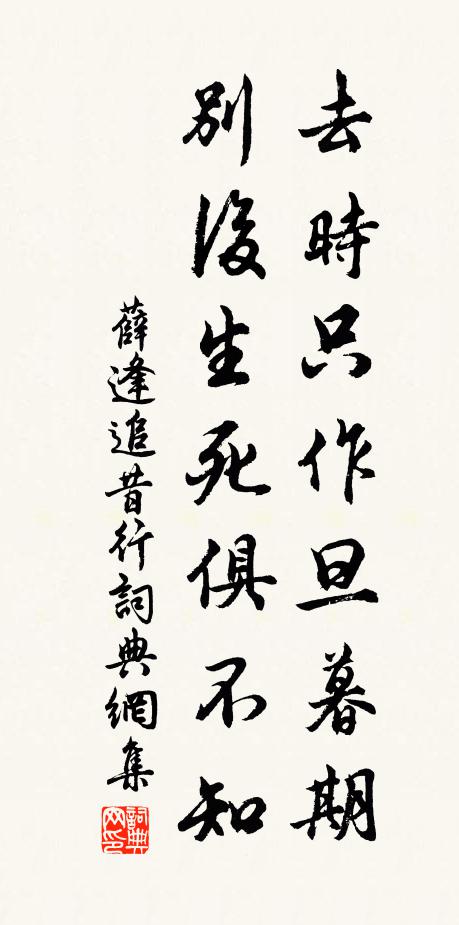 去時只作旦暮期
別後生死俱不知
薛逢追昔行詞典網集
詞典網印